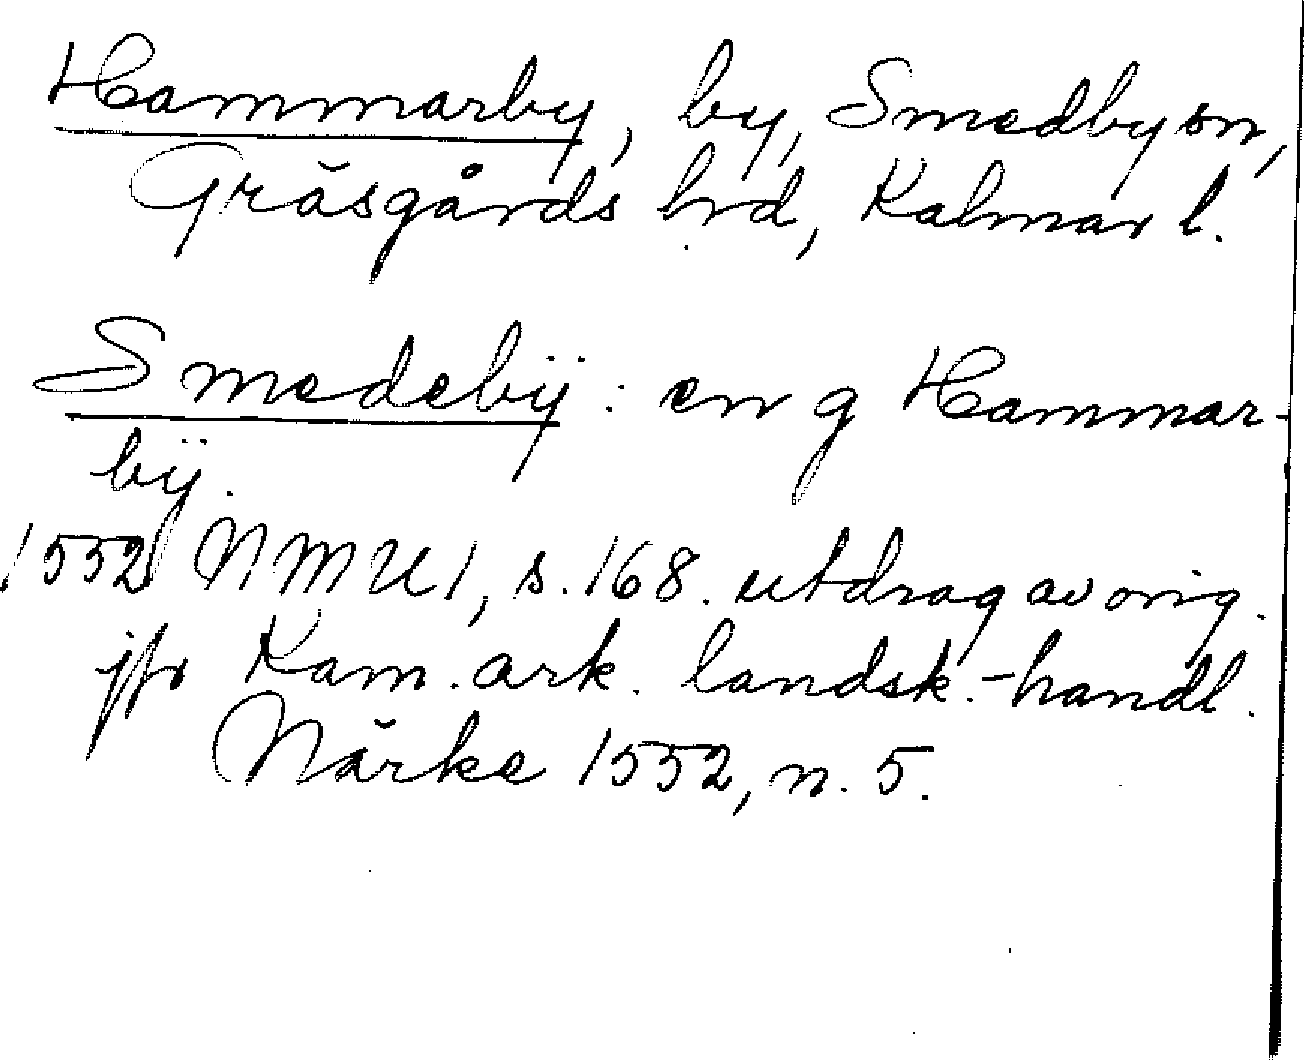 Hammarby, by, Smedby sn,
Gräsgårds hrd, Kalmar l.
Smedebÿ: en g Hammar-
bÿ.
1552 NMU 1, s. 168. utdrag av orig.
jfr Kam. ark. landsk.-handl.
Närke 1552, n. 5.